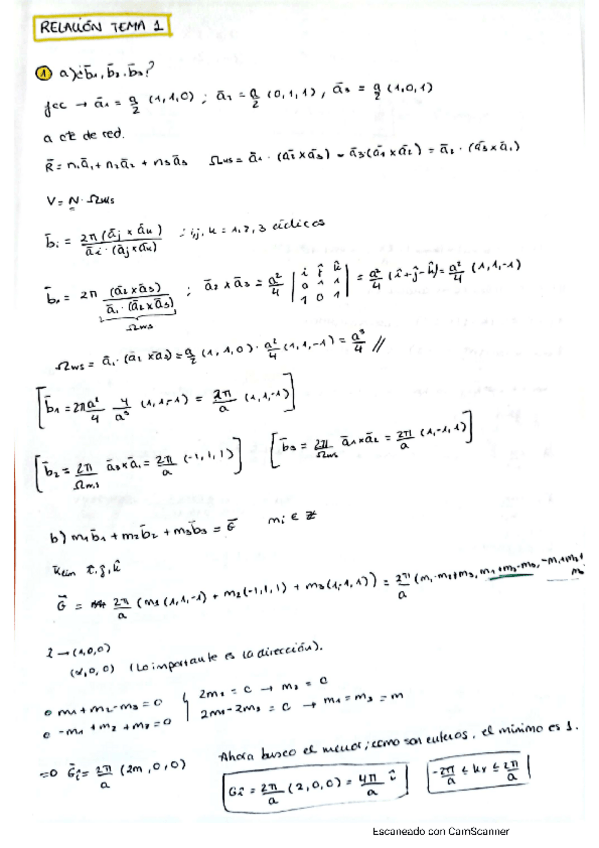 RELACIÓN TEMA 1
① a) ¿b̄₁, b̄₂, b̄₃?
fcc → ā₁ = a/2 (1,1,0) ; ā₂ = a/2 (0,1,1) , ā₃ = a/2 (1,0,1)
a cte de red.
R̄ = n₁ā₁ + n₂ā₂ + n₃ā₃ Ωws = ā₁ · (ā₂ x ā₃) = ā₃ (ā₁ x ā₂) = ā₂ · (ā₃ x ā₁)
V = N · Ωws
b̄i = 2π (āj x āk) / āi · (āj x āk) ; ij, k = 1, 2, 3 cíclicos
b̄₁ = 2π (ā₂ x ā₃) / ā₁ · (ā₂ x ā₃) ; ā₂ x ā₃ = a²/4 | î ĵ k̂ ; 0 1 1 ; 1 0 1 | = a²/4 (î + ĵ - k̂) = a²/4 (1,1,-1)
Ωws
Ωws = ā₁ · (ā₂ x ā₃) = a/2 (1,1,0) · a²/4 (1,1,-1) = a³/4 //
[b̄₁ = 2π a²/4 4/a³ (1,1,-1) = 2π/a (1,1,-1)]
[b̄₂ = 2π/Ωws ā₃ x ā₁ = 2π/a (-1,1,1)] [b̄₃ = 2π/Ωws ā₁ x ā₂ = 2π/a (1,-1,1)]
b) m₁b̄₁ + m₂b̄₂ + m₃b̄₃ = Ḡ mi ∈ ℤ
î, ĵ, k̂
Ḡ = 2π/a (m₁(1,1,-1) + m₂(-1,1,1) + m₃(1,-1,1)) = 2π/a (m₁-m₂+m₃, m₁+m₂-m₃, -m₁+m₂+m₃
î → (1,0,0)
(α,0,0) (Lo importante es la dirección).
0 = m₁ + m₂ - m₃ = 0
0 = -m₁ + m₂ + m₃ = 0
2m₂ = 0 → m₂ = 0
2m₁ - 2m₃ = 0 → m₁ = m₃ = m
Ahora busco el menor; como son enteros, el mínimo es 1.
=> Ḡî = 2π/a (2m,0,0)
Gî = 2π/a (2,0,0) = 4π/a î
-2π/a ≤ kx ≤ 2π/a
Escaneado con CamScanner